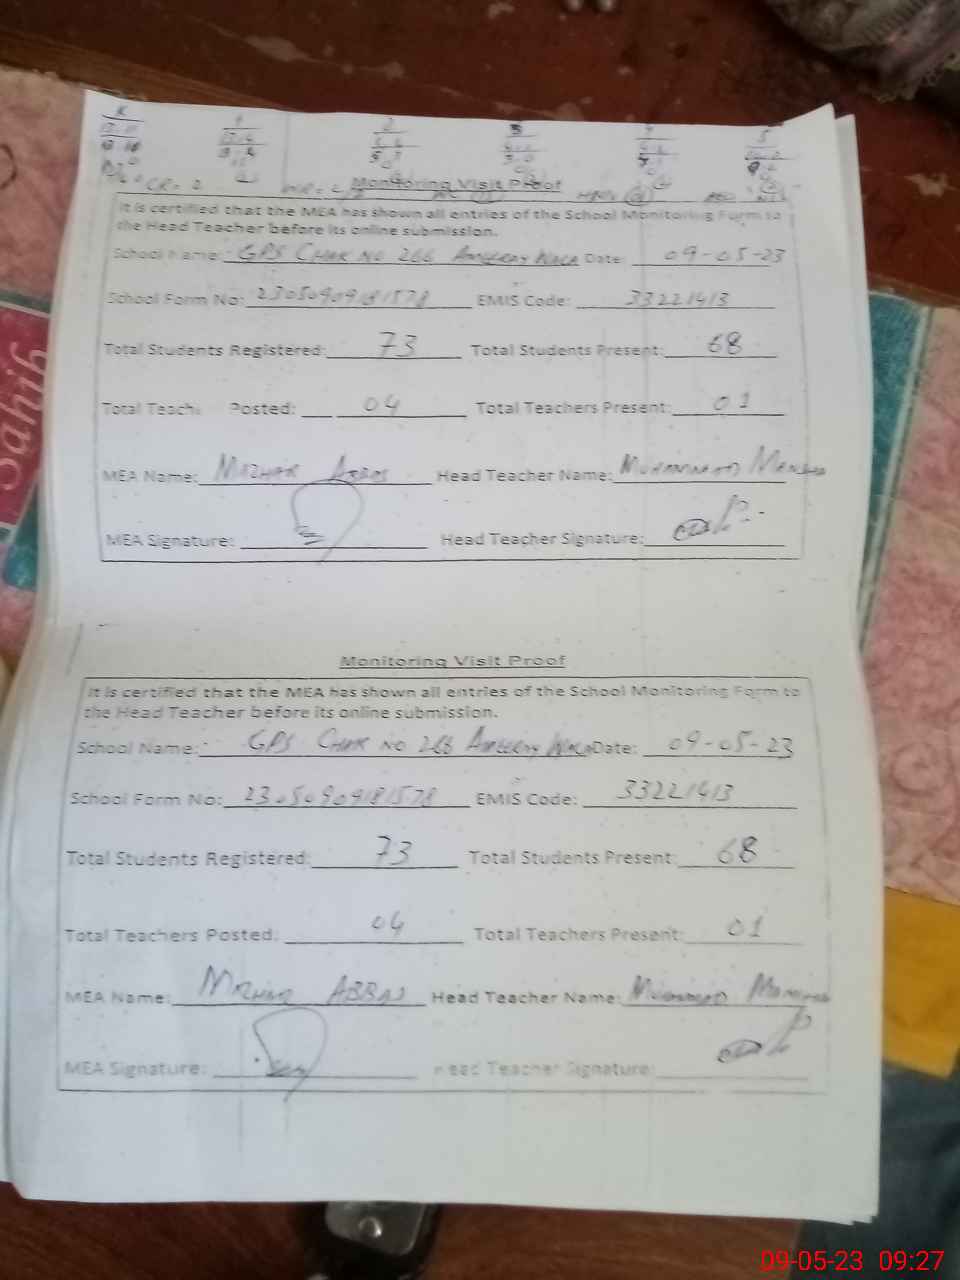 K 1 2 3 4 5
CR= 2
Monitoring Visit Proof
It is certified that the MEA has shown all entries of the School Monitoring Form to
the Head Teacher before its online submission.
School Name: GPS CHAK NO 266 WALA Date: 09-05-23
School Form No: 23050909181578 EMIS Code: 33221413
Total Students Registered: 73 Total Students Present: 68
Total Teach Posted: 04 Total Teachers Present: 01
MEA Name: MAZHAR ABBAS Head Teacher Name: MUHAMMAD
MEA Signature: Head Teacher Signature:
Monitoring Visit Proof
It is certified that the MEA has shown all entries of the School Monitoring Form to
the Head Teacher before its online submission.
School Name: GPS CHAK NO 266 WALA Date: 09-05-23
School Form No: 23050909181578 EMIS Code: 33221413
Total Students Registered: 73 Total Students Present: 68
Total Teachers Posted: 04 Total Teachers Present: 01
MEA Name: MAZHAR ABBAS Head Teacher Name: MUHAMMAD
MEA Signature: Head Teacher Signature:
Sahib
09-05-23 09:27